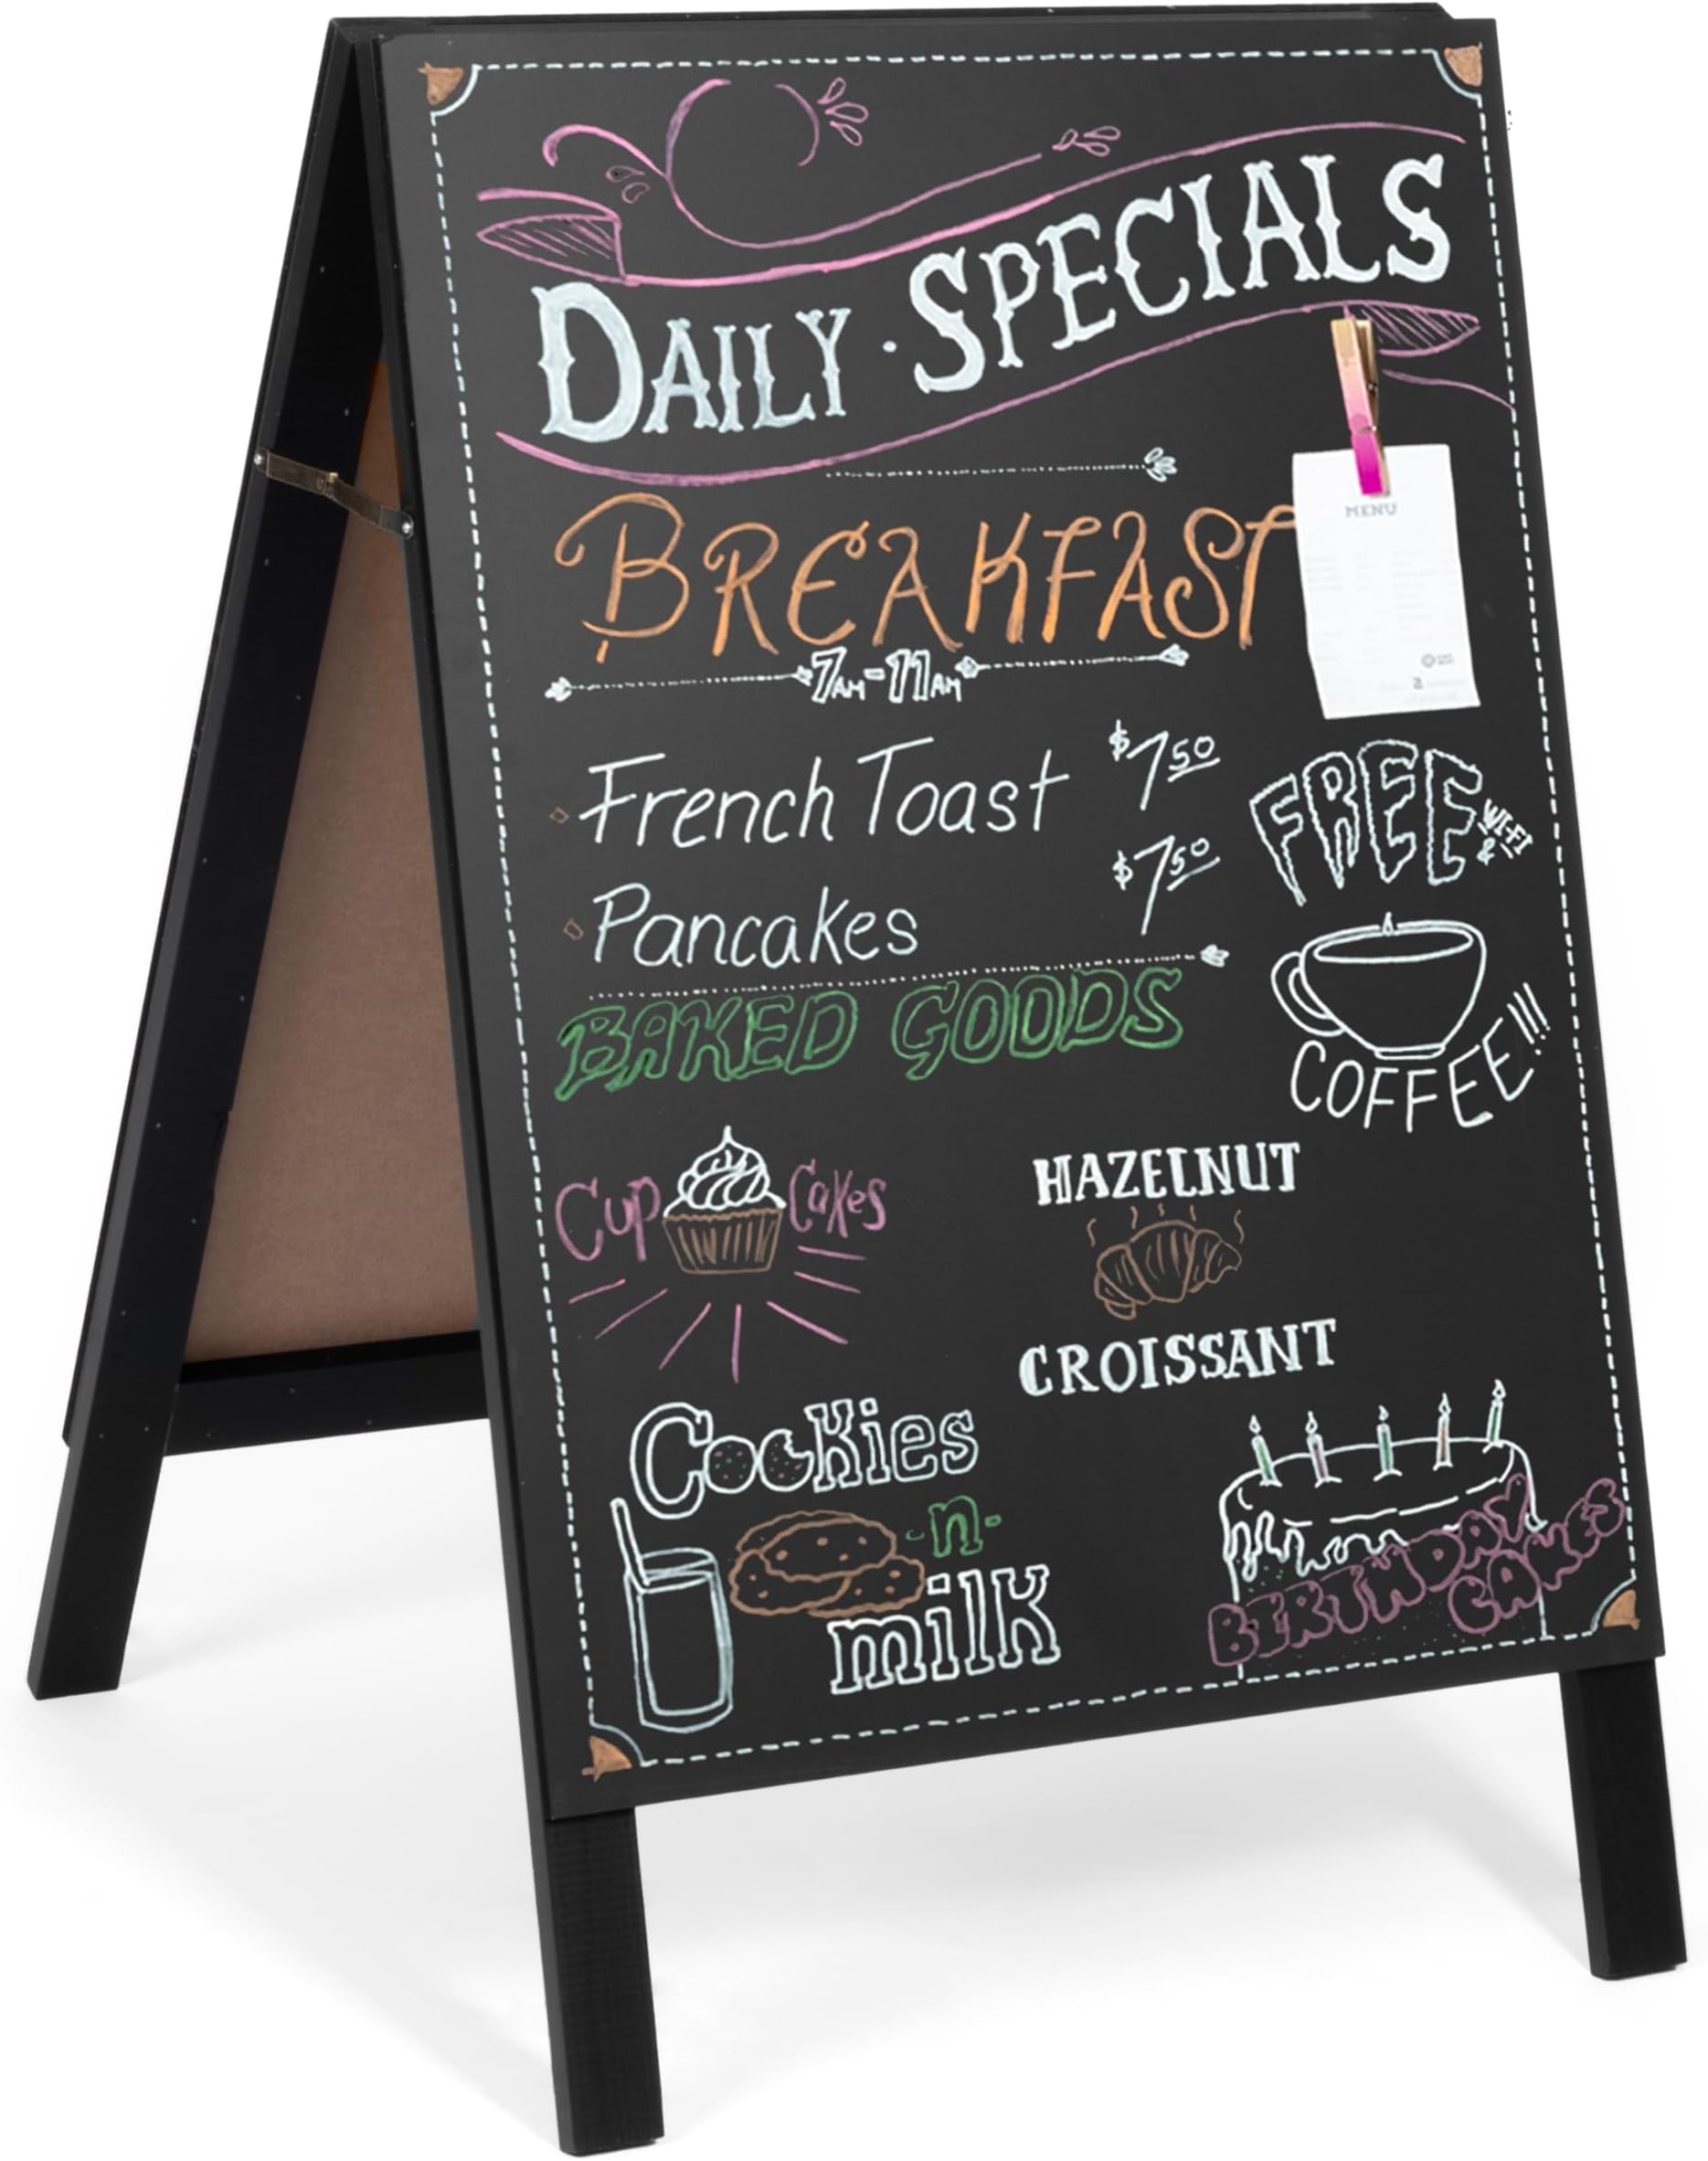 DAILY · SPECIALS
BREAKFAST
7AM-11AM
MENU
French Toast $7.50
Pancakes $7.50
FREE WI-FI &
COFFEE!!!
BAKED GOODS
Cup Cakes
HAZELNUT
CROISSANT
Cookies
-n-
milk
BIRTHDAY
CAKES